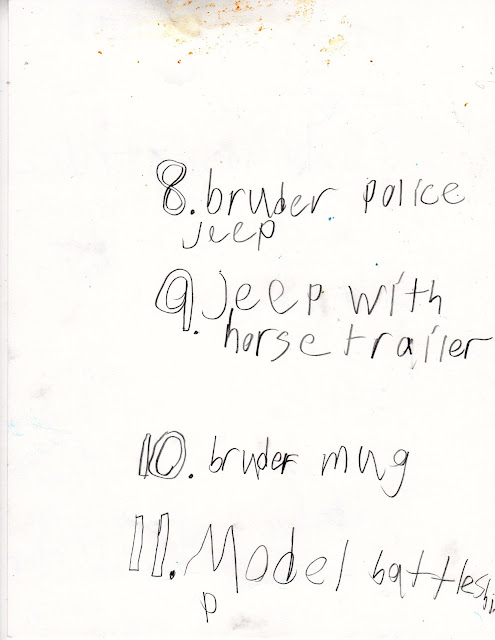 8. bruder police
jeep
9. Jeep with
horse trailer
10. bruder mug
11. Model battleshi
p